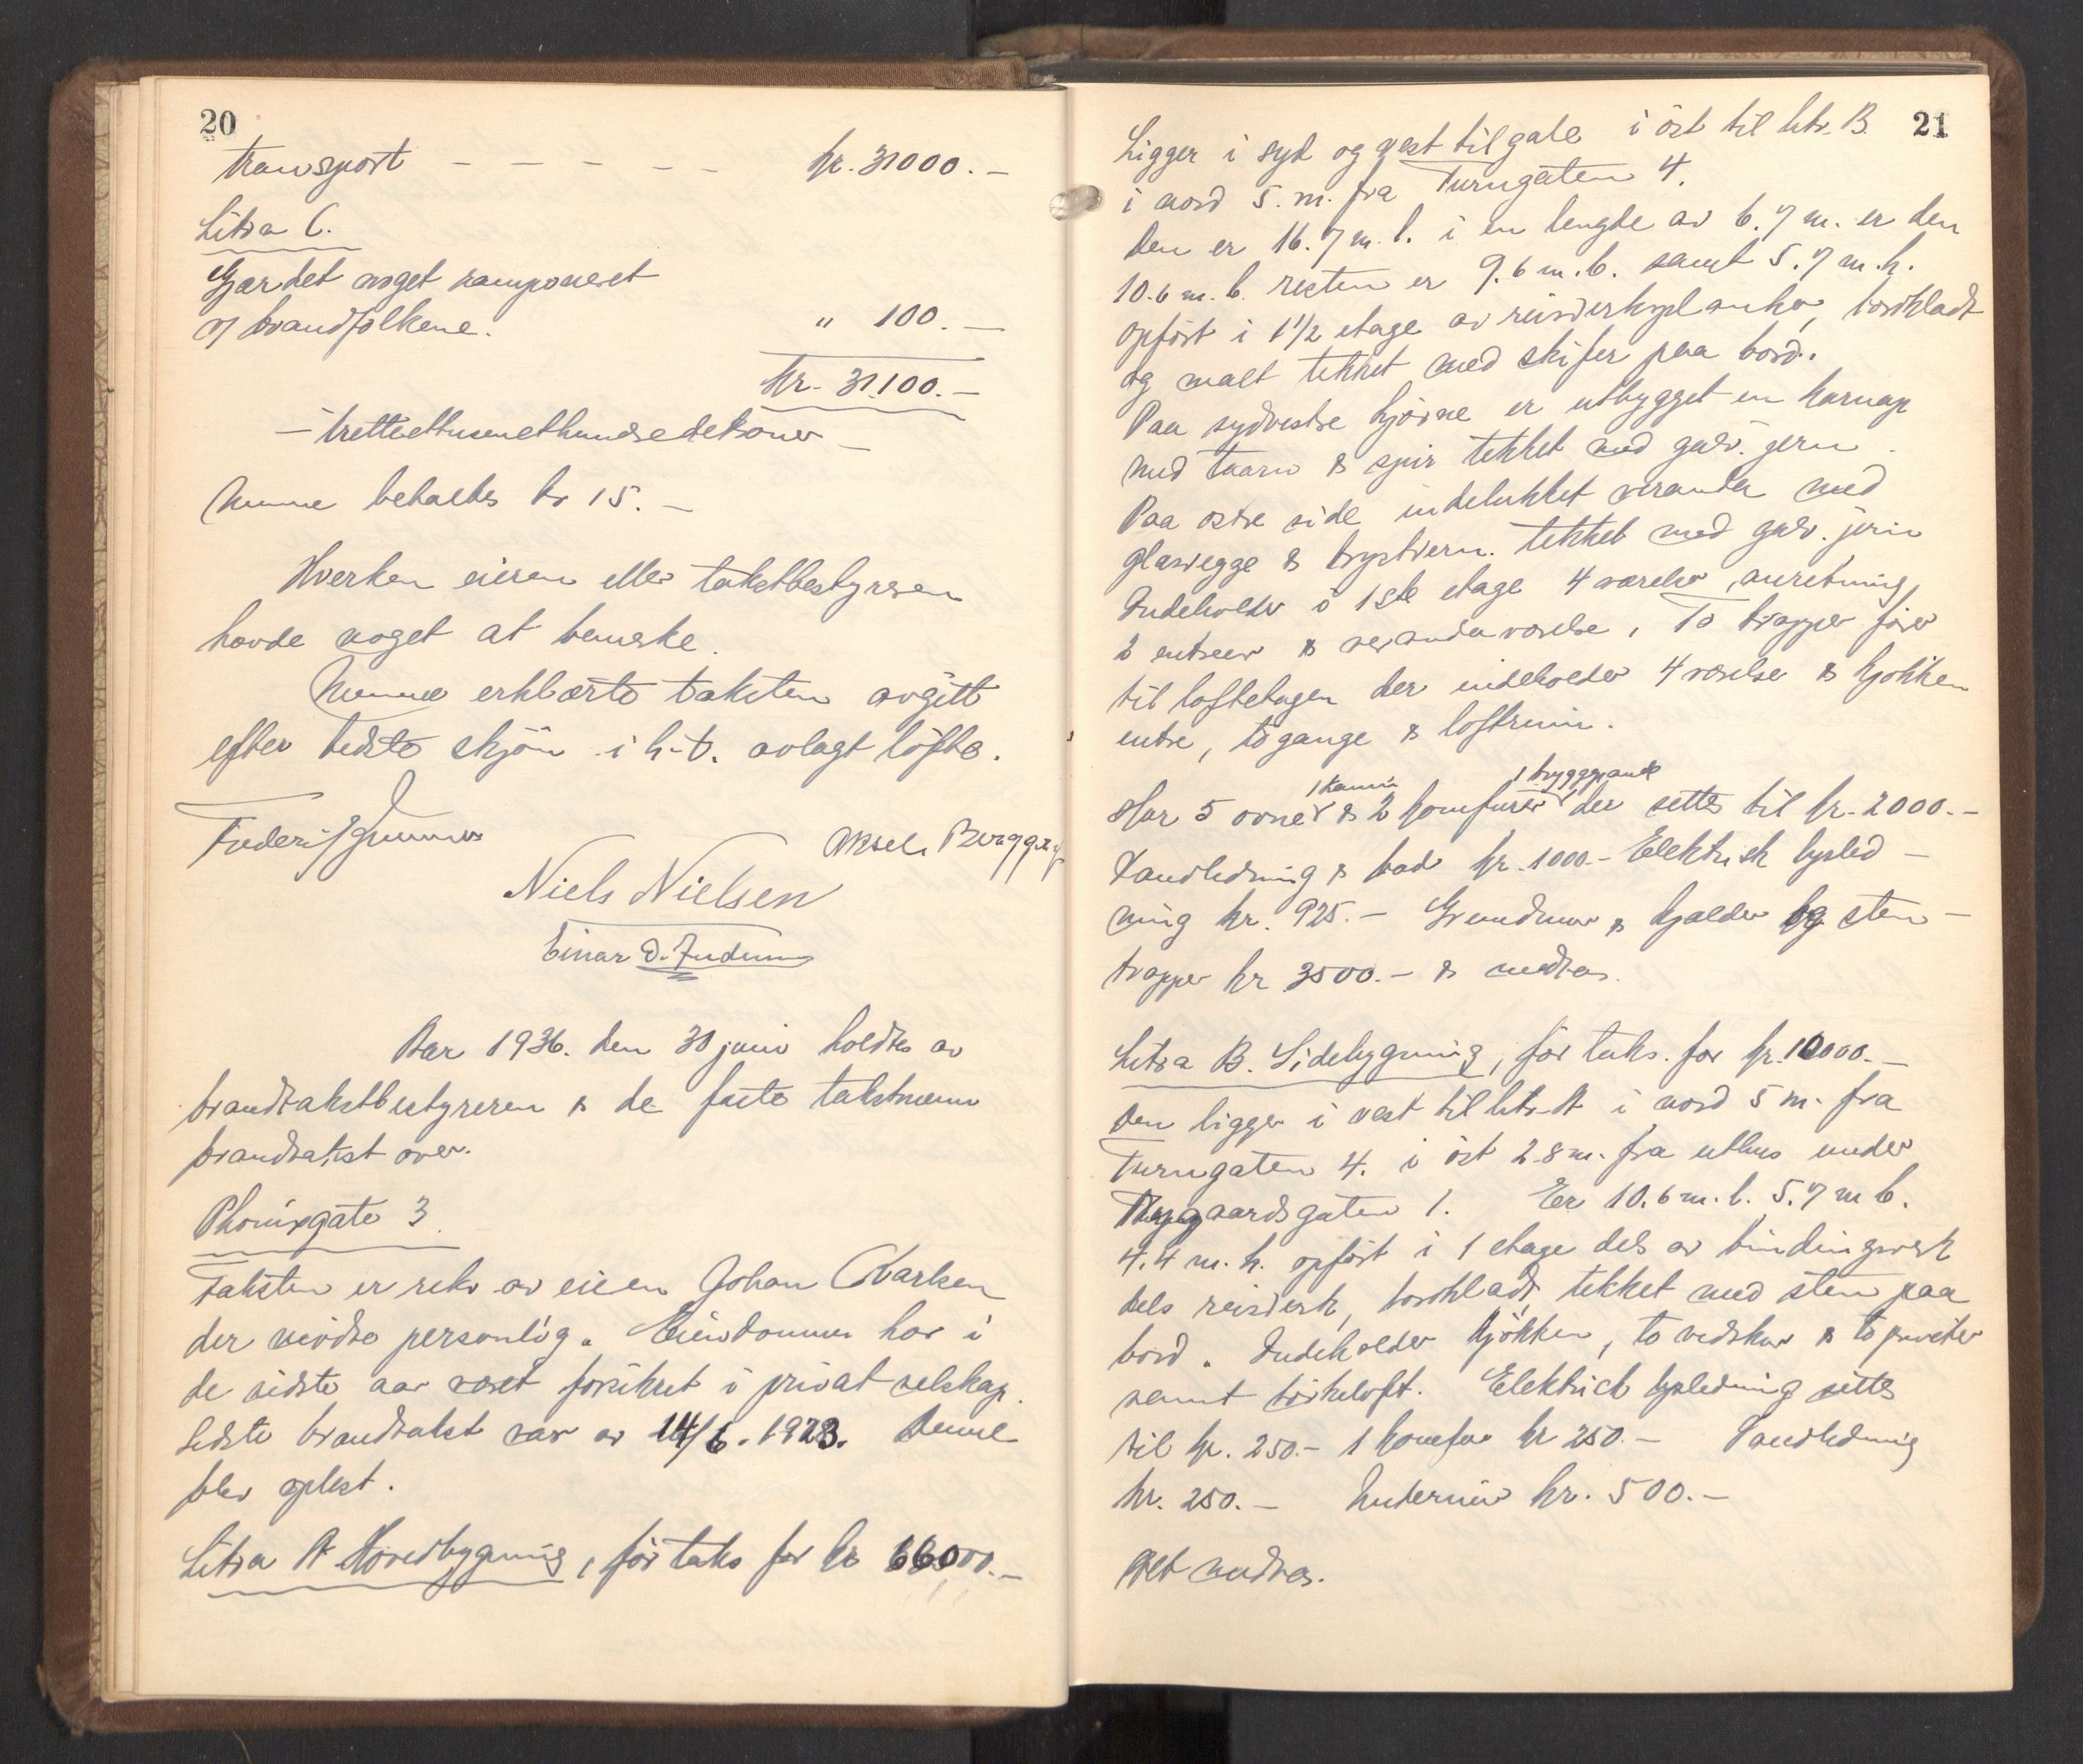 20
Transport - - - - - kr. 31000.-
Litra C.
Gjærdet noget ramponeret
af brandfolkene. " 100.-
kr. 31.100.-
- trettiettusenethundredekroner -
Mænne betaltes kr 15.-
Hverken eieren eller takstbestyreren
havde noget at bemerke.
Mænne erklærte taksten avgitt
efter bedste skjøn i h.t. avlagt løfte.
Aksel Berggre
Niels Nielsen
Einar D.
Aar 1936. den 30 juni holdtes av
brandtakstbestyreren & de faste takstmænn
brandtakst over.
Phønixgate 3.
Taksten er rekv av eieren Johan
der mødte personlig. Eiendommen har i
de sidste aar været forsikret i privat selskap.
Sidste brandtakst var av 14/6. 1923. Denne
blev oplest.
Litra A Hovedbygning, før takst for kr 66000.-
21
Ligger i syd og vest til gate i øst til litr. B.
i nord 5. m. fra Turngaten 4.
Den er 16.7 m. l. i en lengde av 6.7 m. er den
10.6 m. b. resten er 9.6 m. b. samt 5.7 m. h.
opført i 1 1/2 etage av reisverk, bordkladt
og malt tekket med skifer paa bord.
Paa sydvestre hjørne er utbygget en karnap
med taarn & spir tekket med galv. jern.
Paa østre side indelukket veranda med
glasvegge & brystvern. tekket med galv. jern
Indeholder i 1ste etage 4 værelser, anretning,
2 entreer & verandaværelse, To trapper fører
til loftetagen der indeholder 4 værelse & kjøkken
entre, to gange & loftrum.
1 kamin 1 bryggepande
Har 5 ovner & 2 komfurer der settes til kr. 2000.-
Vandledning & bad kr. 1000.- Elektrisk lysled-
ning kr. 925.- Grundmur & kjælder og sten-
trapper kr 3500.- & medtas.
Litra B. Sidebygning, før takst. for kr. 10000.-
Den ligger i vest til litr. A i nord 5 m. fra
Turngaten 4. i øst 2.8 m. fra uthus under
Nygaardsgaten 1. Er 10.6 m. l. 5.7 m b.
4.4 m. h. opført i 1 etage dels av bindingsverk
dels reisverk, bordkladt, tekket med sten paa
bord. Indeholder kjøkken, to vedskur & to priveter
samt tørkeloft. Elektrisk lysledning settes
til kr. 250.- 1 komfur kr 250.- Vandledning
kr. 250.- Undermur kr. 500.-
Alt medtas.